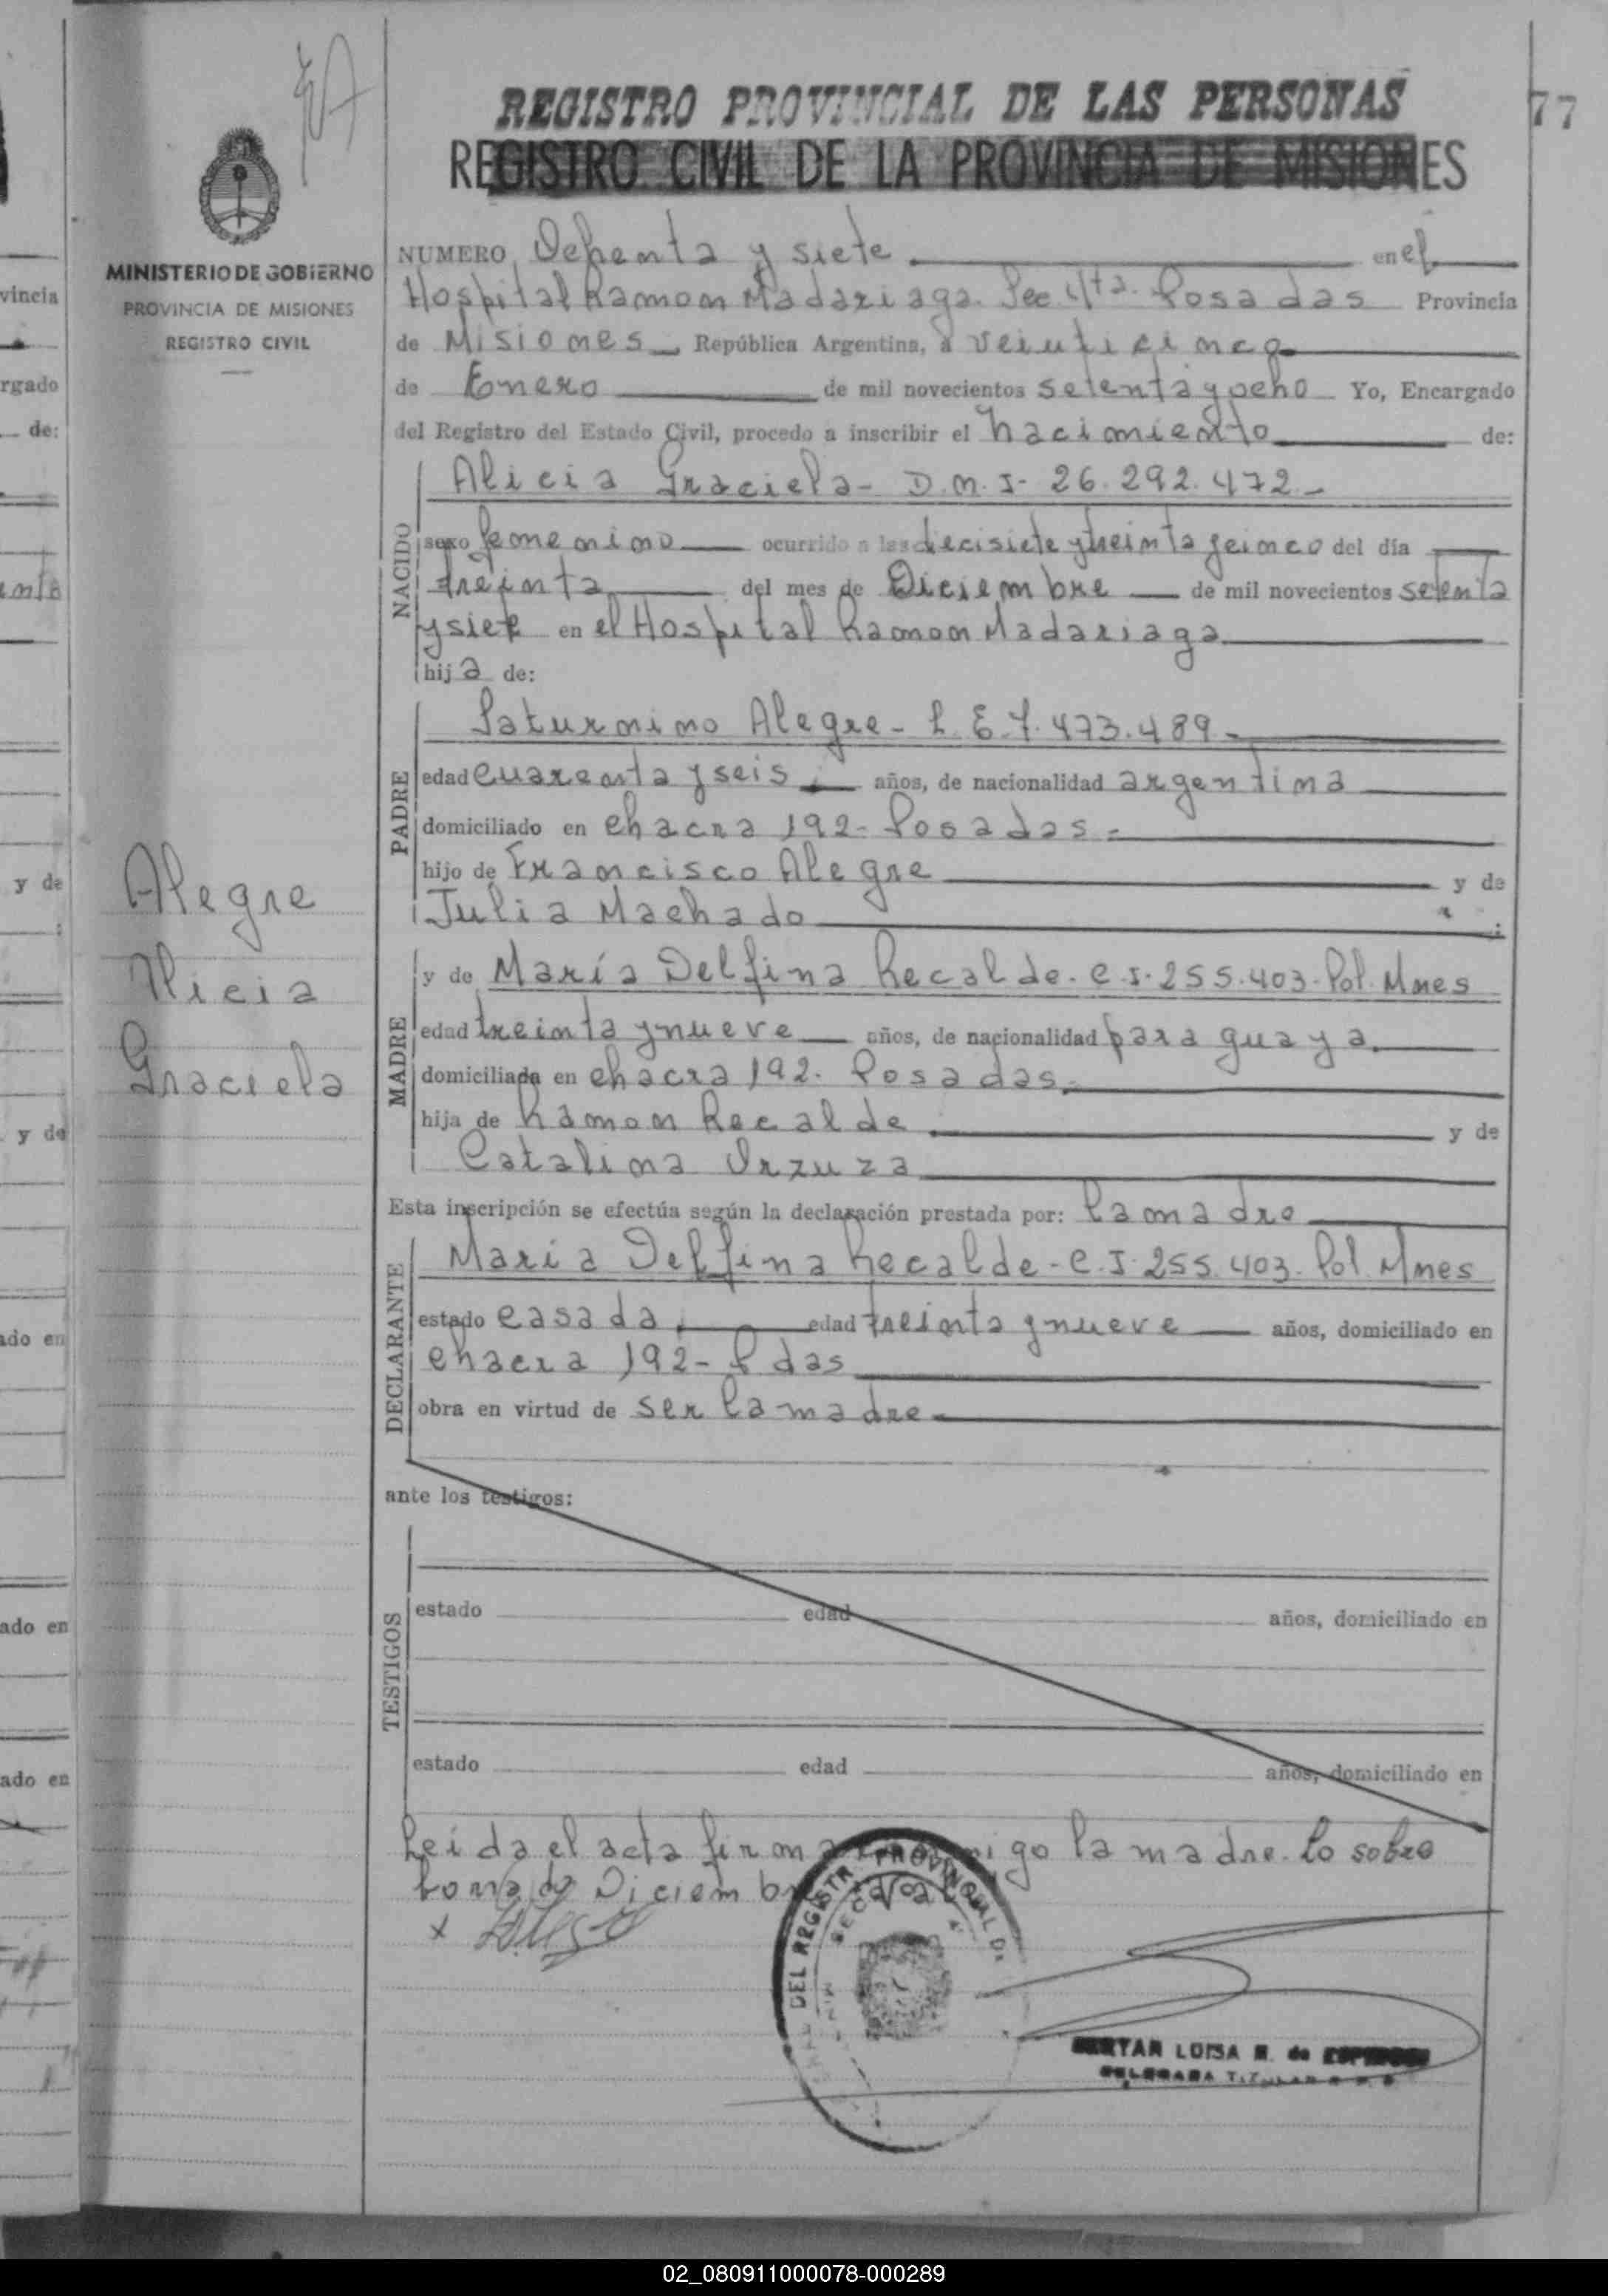 REGISTRO PROVINCIAL DE LAS PERSONAS
77
REGISTRO CIVIL DE LA PROVINCIA DE MISIONES
MINISTERIO DE GOBIERNO
PROVINCIA DE MISIONES
REGISTRO CIVIL
NUMERO Setenta y siete en el
Hospital Ramon Madariaga. Sec 4ta. Posadas Provincia
de Misiones República Argentina, a veinticinco
de Enero de mil novecientos setenta y ocho Yo, Encargado
del Registro del Estado Civil, procedo a inscribir el nacimiento de:
NACIDO
Alicia Graciela - D.N.I- 26.292.472-
sexo femenino ocurrido a las diecisiete y treinta y cinco del día
treinta del mes de Diciembre de mil novecientos setenta
y siete en el Hospital Ramon Madariaga
hija de:
PADRE
Saturnino Alegre - L.E 7.473.489-
edad cuarenta y seis años, de nacionalidad argentina
domiciliado en chacra 192- Posadas-
hijo de Francisco Alegre y de
Julia Machado :
Alegre
Alicia
Graciela
MADRE
y de María Delfina Recalde. C.I. 255.403. Pol. Mnes
edad treinta y nueve años, de nacionalidad paraguaya
domiciliada en chacra 192. Posadas.
hija de Ramon Recalde y de
Catalina Urzuza
Esta inscripción se efectúa según la declaración prestada por: la madre
DECLARANTE
María Delfina Recalde - C.I. 255.403. Pol. Mnes
estado casada edad treinta y nueve años, domiciliado en
chacra 192- Pdas
obra en virtud de ser la madre
ante los testigos:
TESTIGOS
estado edad años, domiciliado en
estado edad años, domiciliado en
Leida el acta firma conmigo la madre. Lo sobre
borrado Diciembre Vale
x
DEL REGISTR PROVINCIAL DE
SECC 4
LUISA de
DELEGADA TITULAR
vincia
rgado
de:
y de
y de
ado en
ado en
ado en
02_080911000078-000289